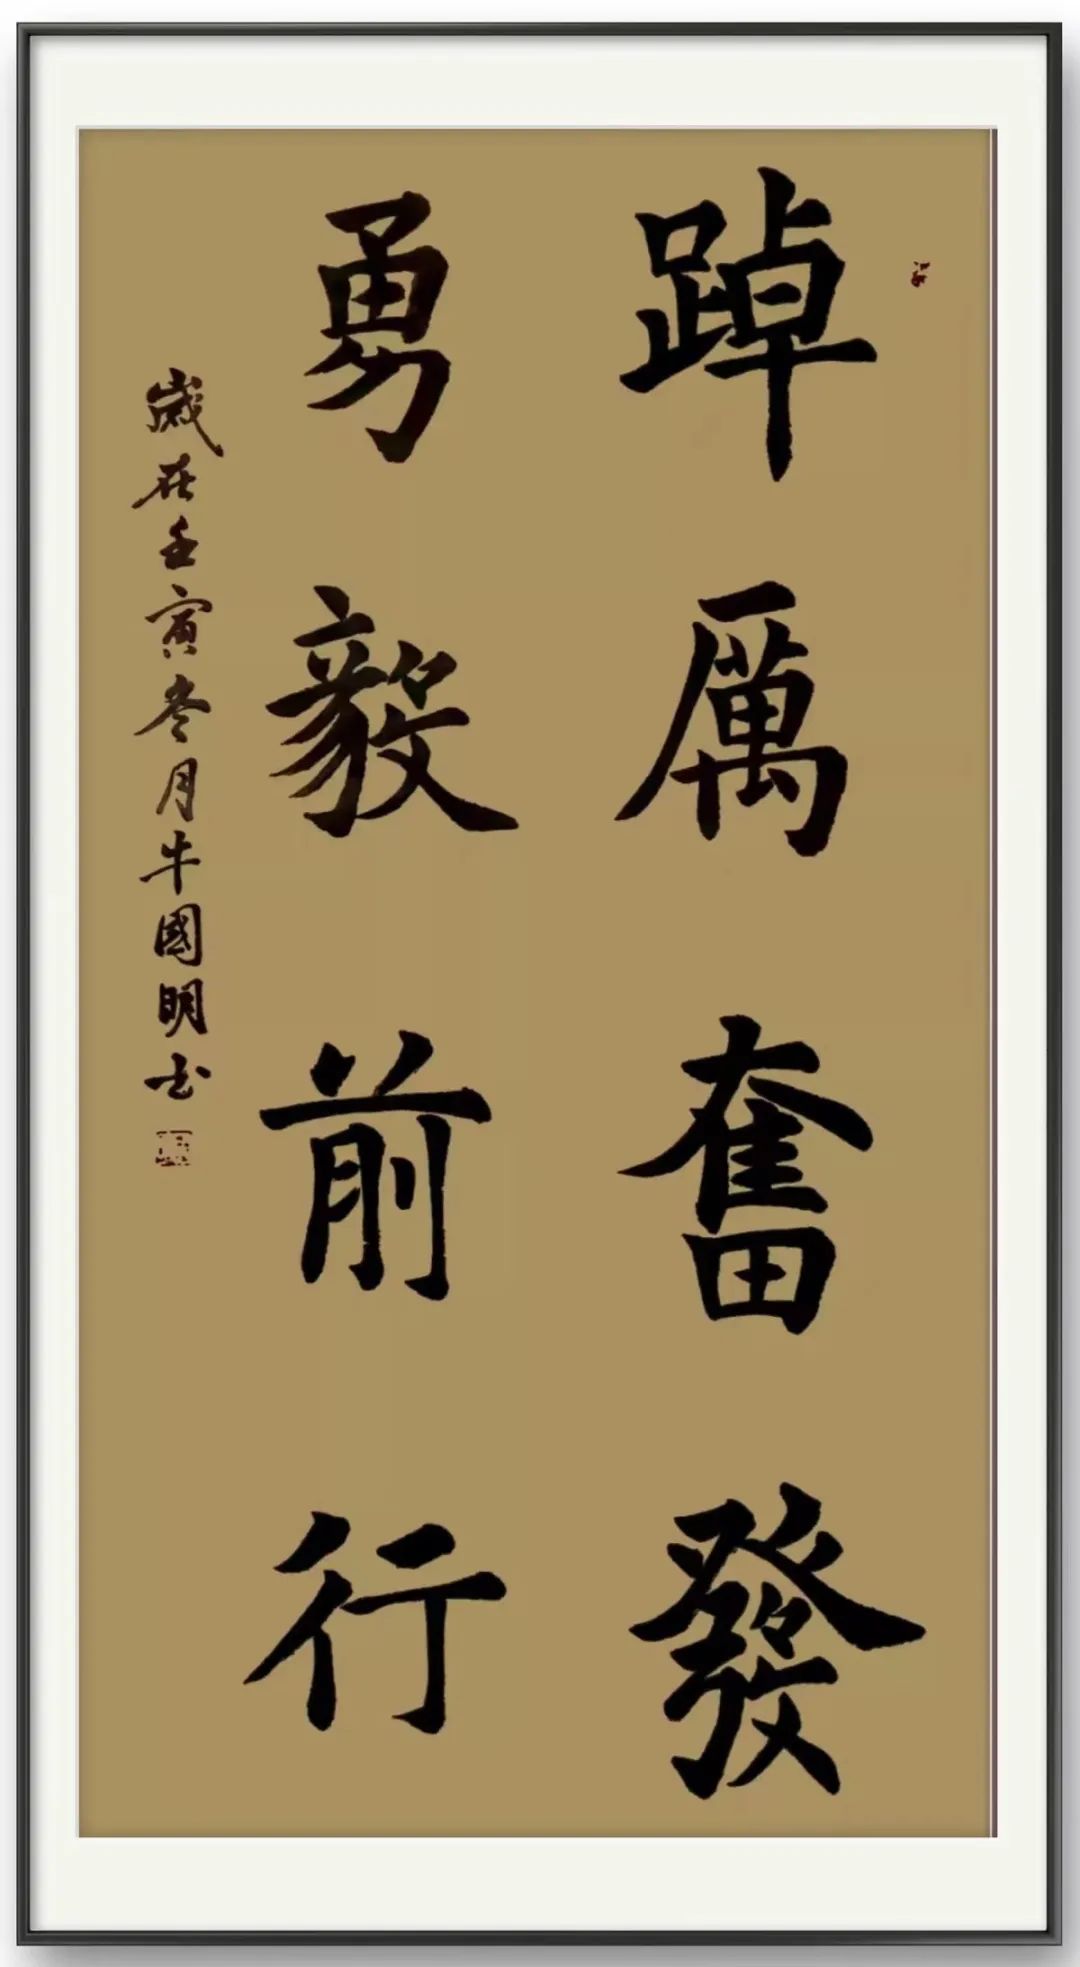 踔厲奮發
勇毅前行
歲在壬寅冬月牛國明书